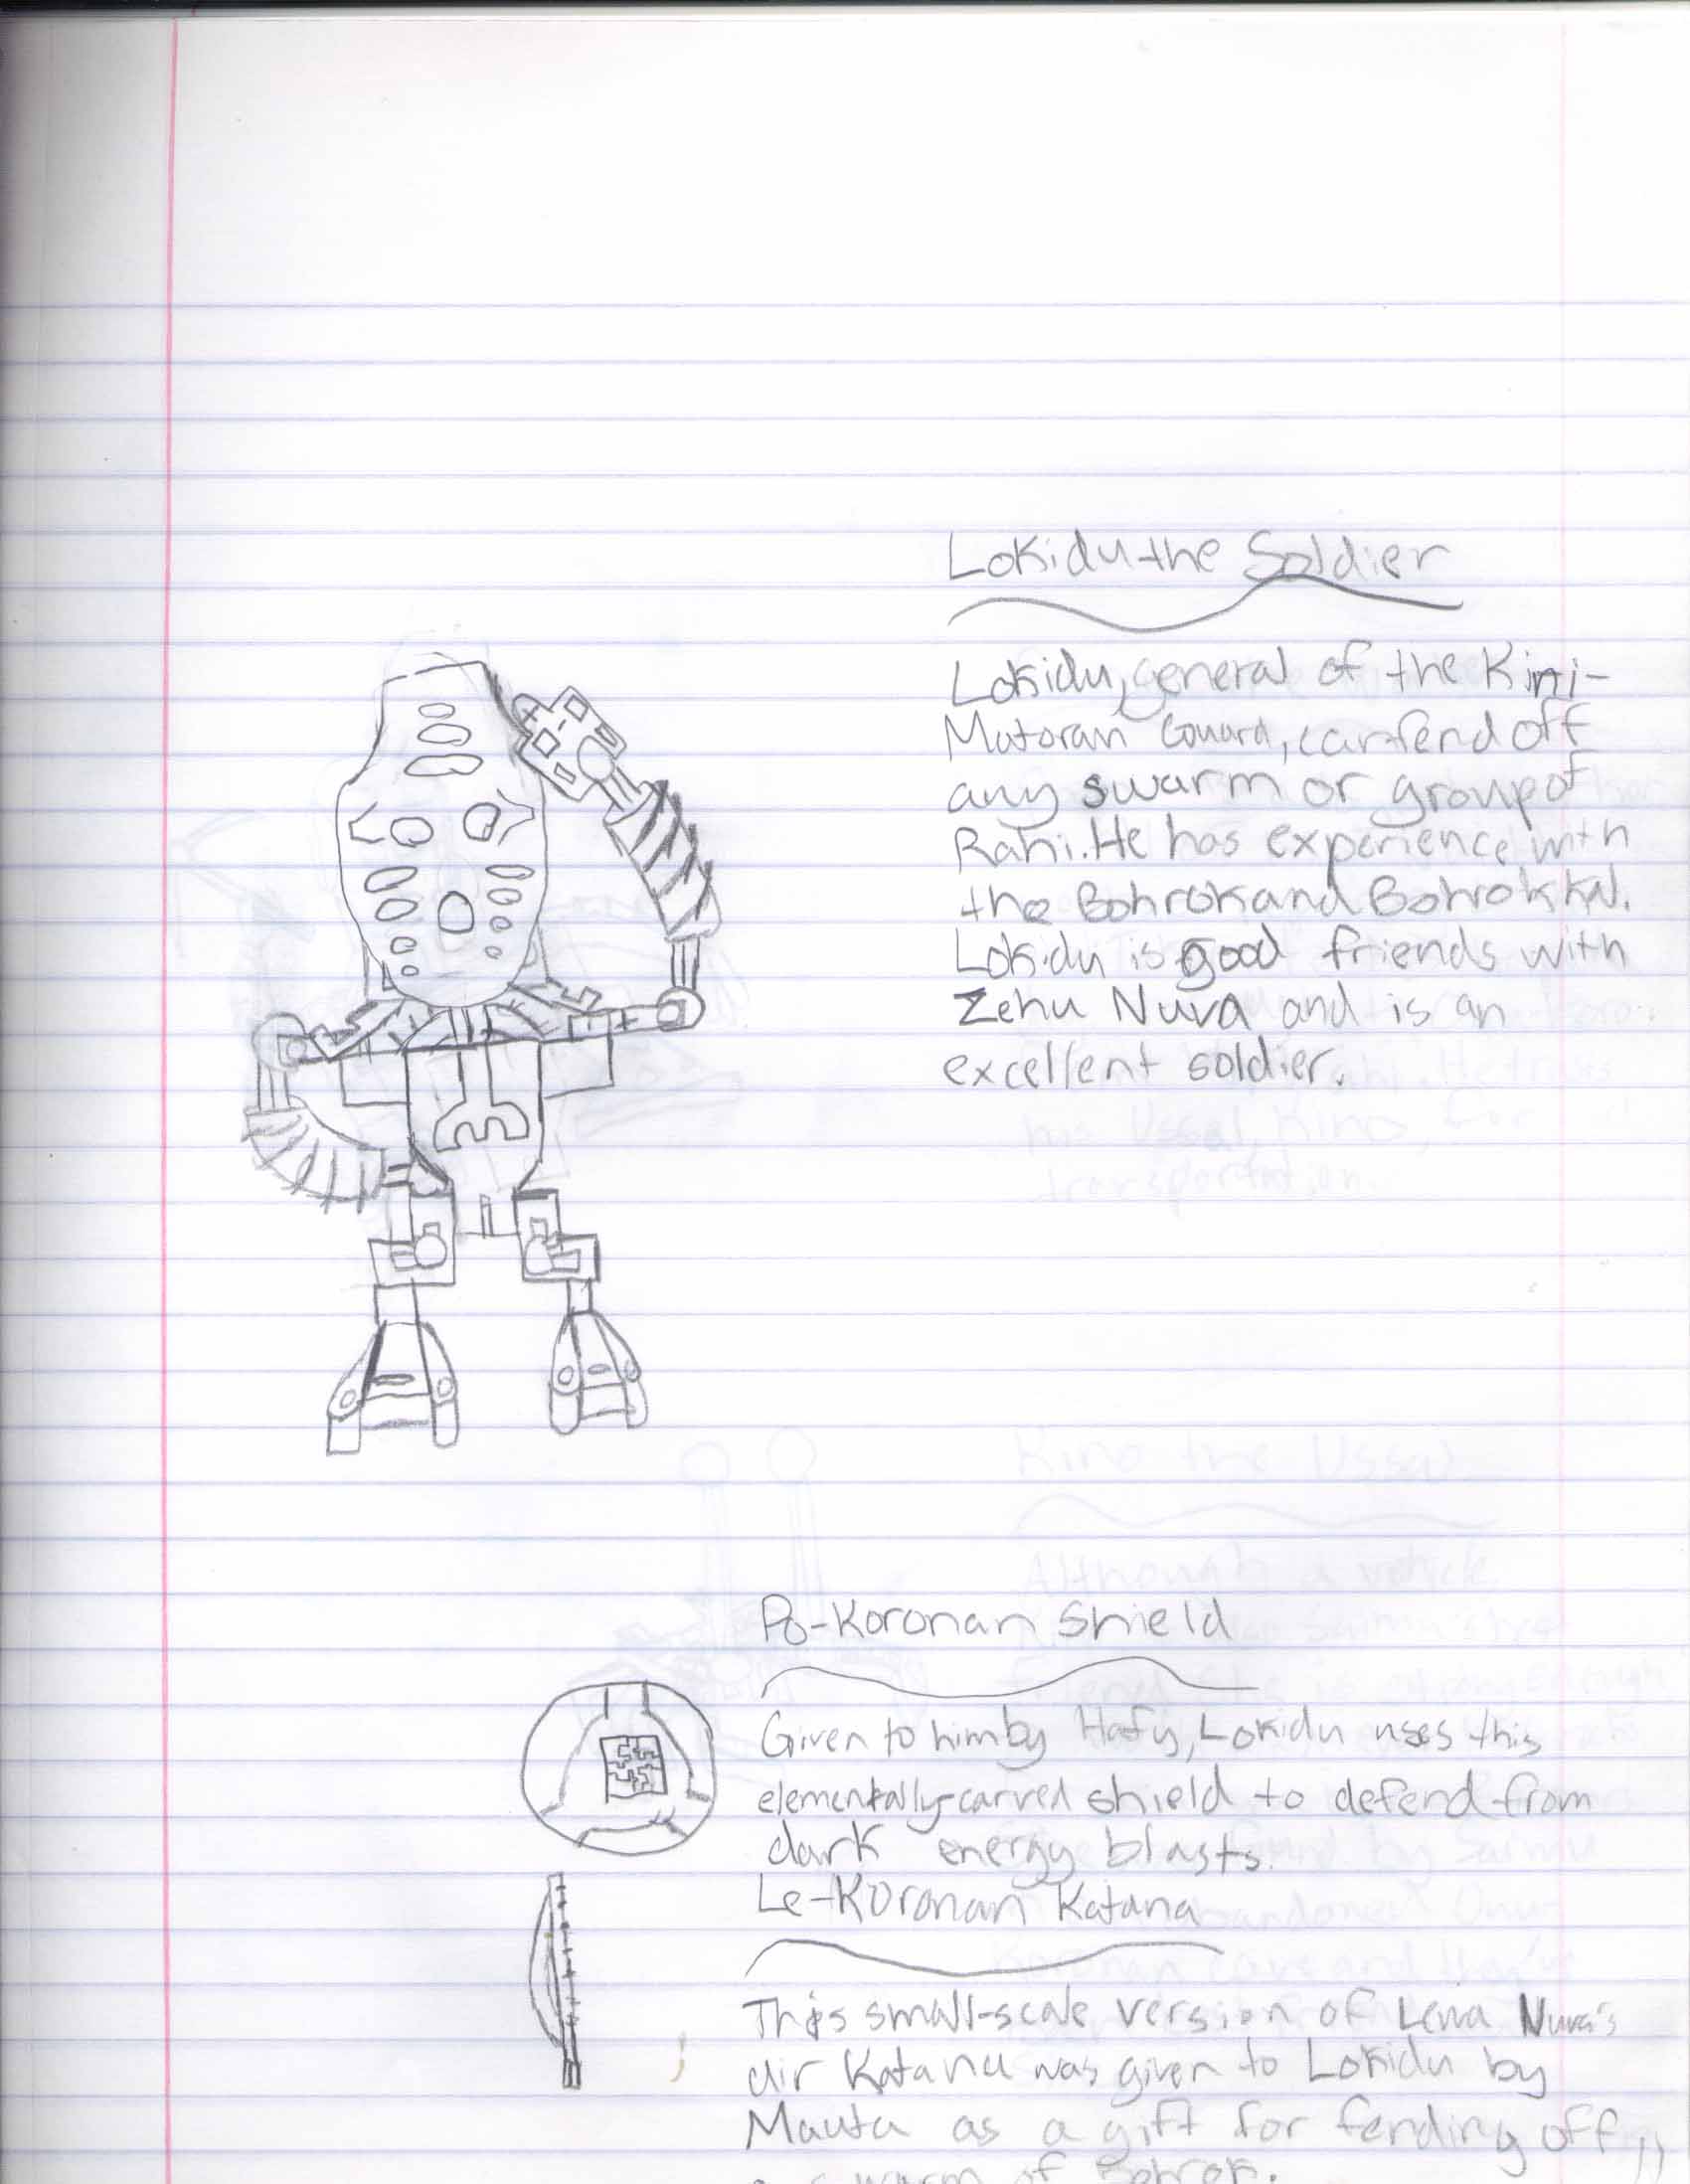 Lokidu the Soldier
Lokidu, general of the Kini-
Matoran Guard, can fend off
any swarm or group of
Rahi. He has experience with
the Bohrok and Bohrok Kal.
Lokidu is good friends with
Zehu Nuva and is an
excellent soldier.
Po-Koronan Shield
Given to him by Hafy, Lokidu uses this
elementally-carved shield to defend from
dark energy blasts.
Le-Koronan Katana
This small-scale version of Lewa Nuva's
air Katana was given to Lokidu by
Mauta as a gift for fending off
a swarm of Bohrok.
Kino the Ussal
Although a vehicle